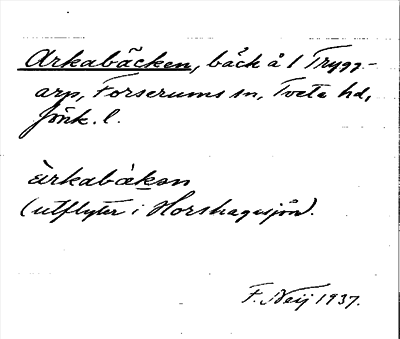 Arkabäcken, bäck å 1 Trygg-
arp, Forserums sn, Tveta hd,
Jönk. l.
àrkabäkən
(utflyter i Horshagasjön).
F. Neij 1937.